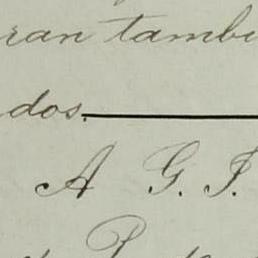 ran tambi
dos.
A G. I.
P